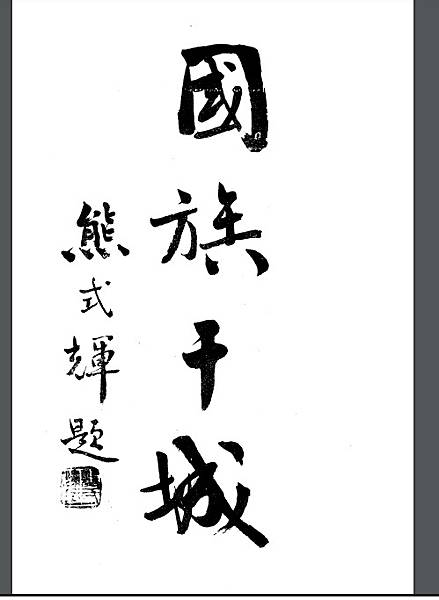 國族干城
熊式輝題